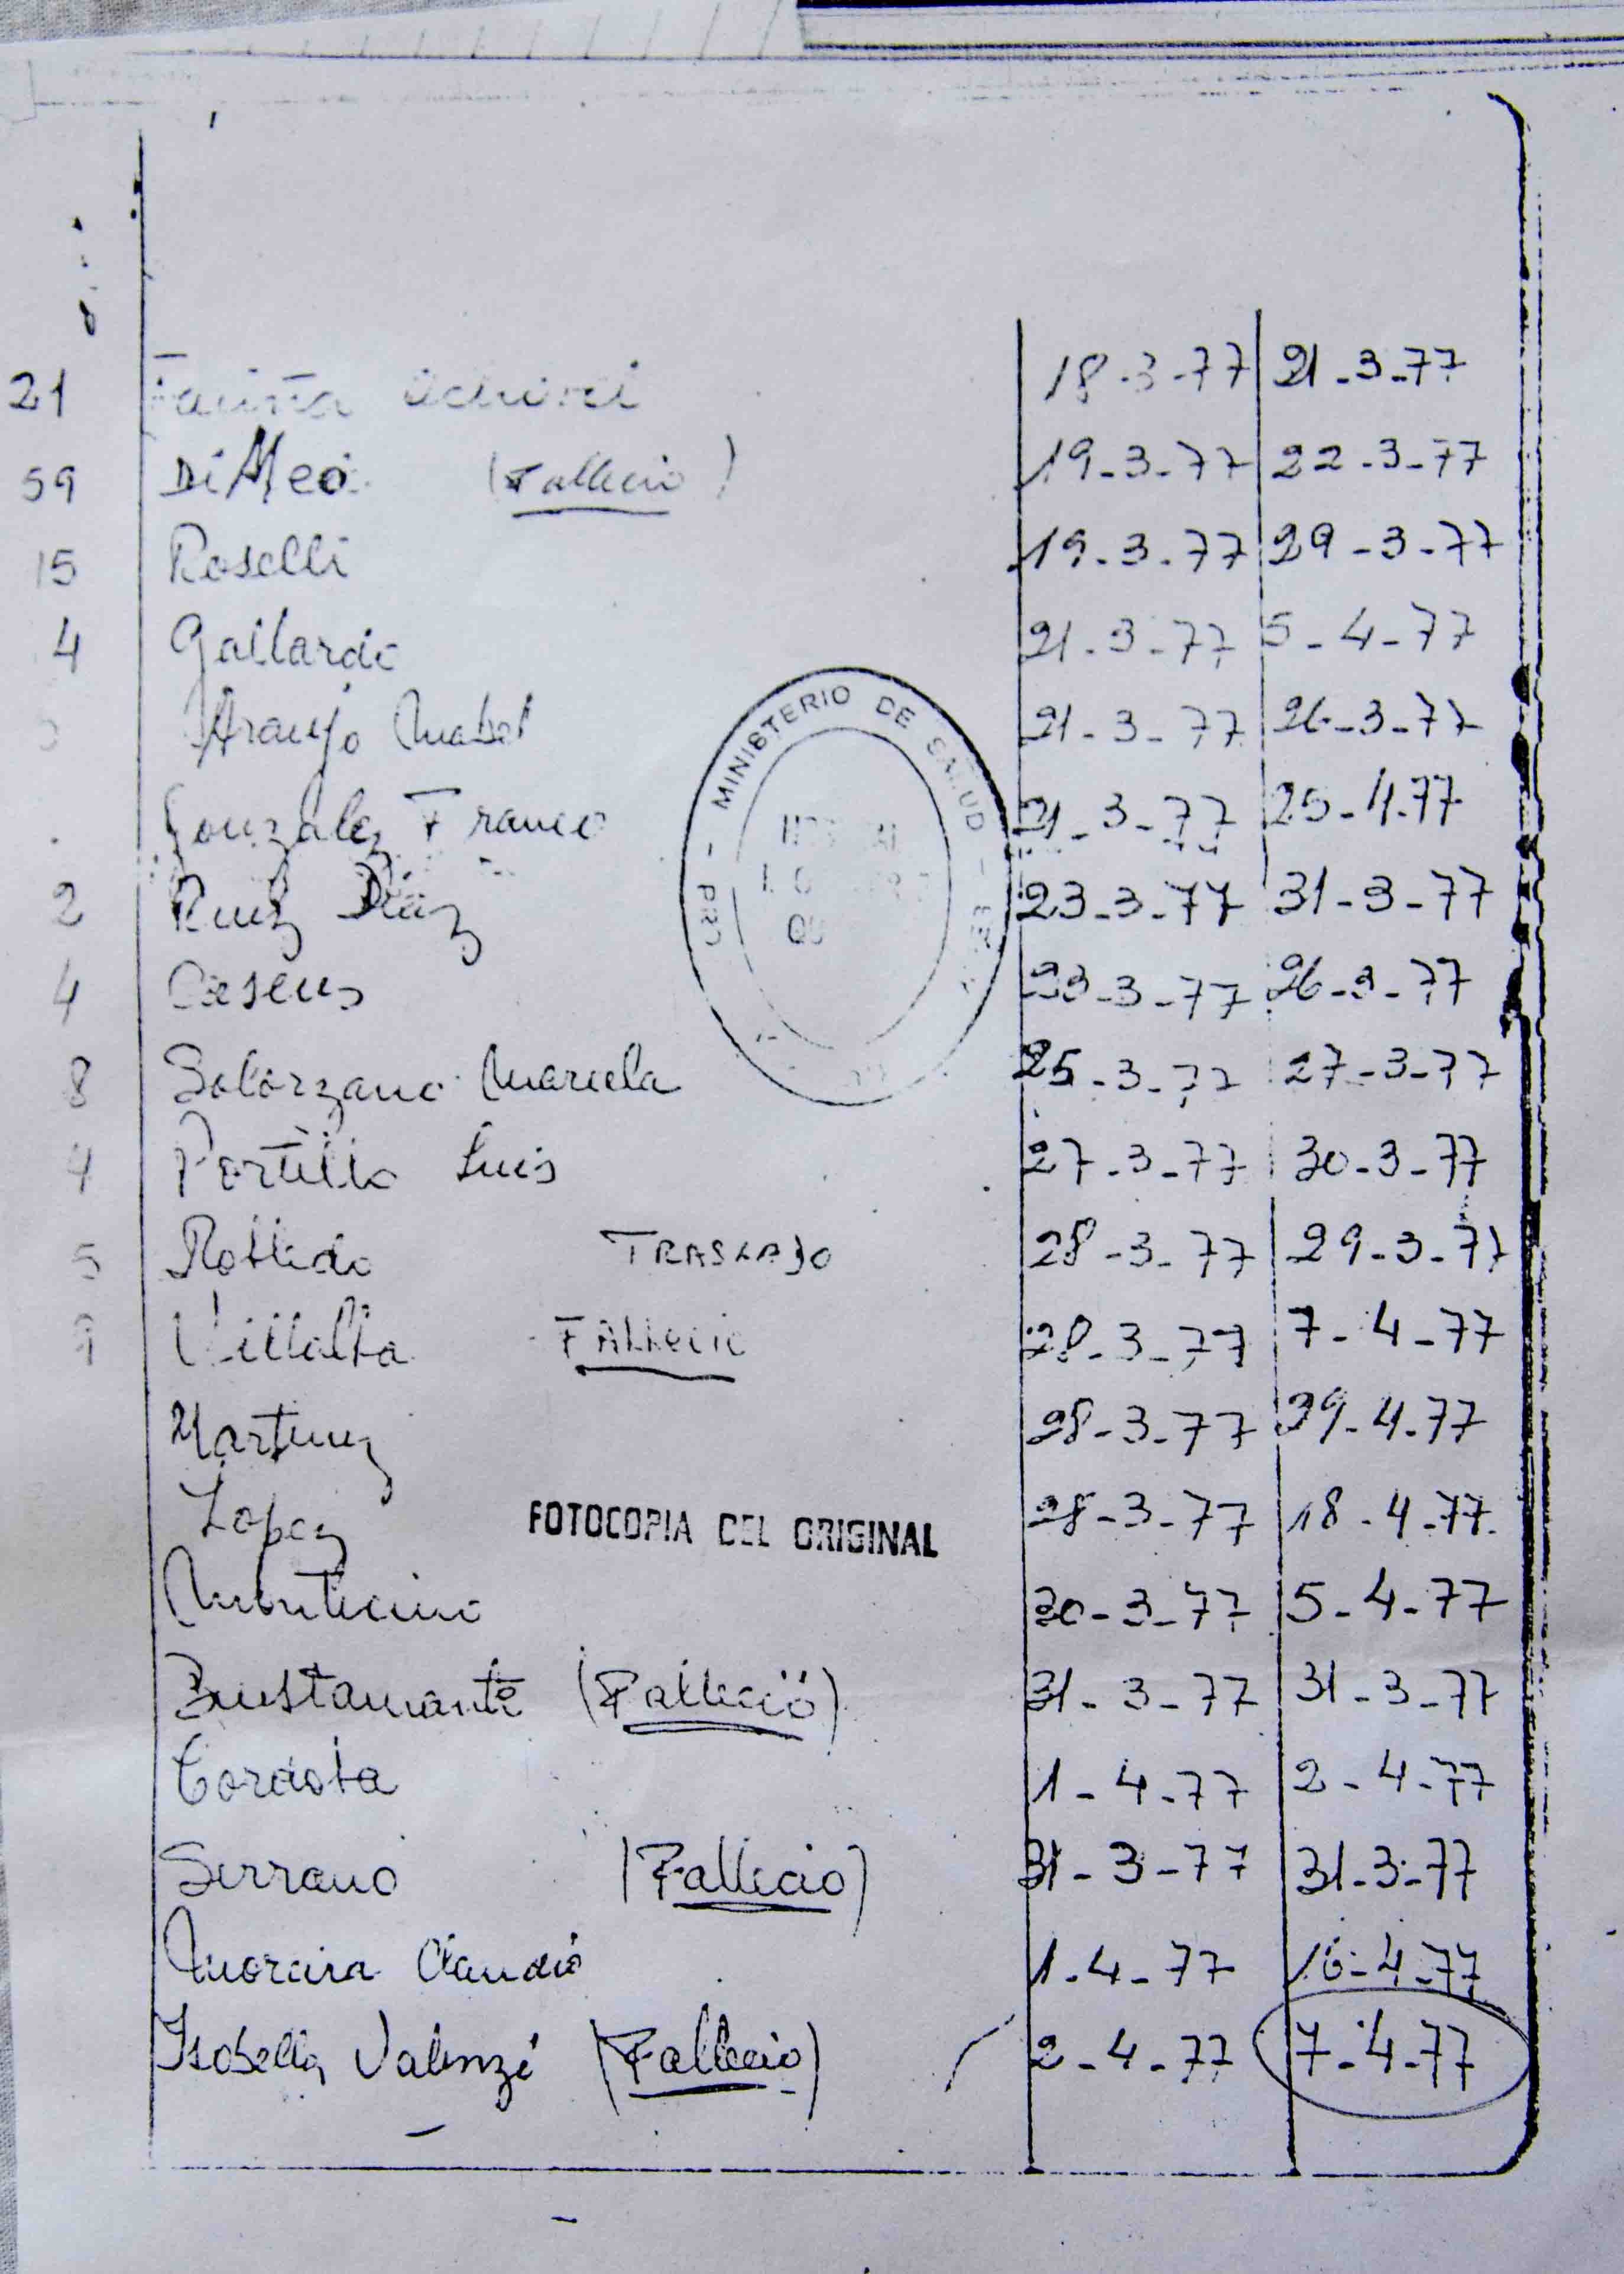 21 18-3-77 21-3-77
59 Di Meo (Fallecio) 19-3-77 22-3-77
15 Roselli 19-3-77 29-3-77
4 Gallardo 21-3-77 5-4-77
Araujo Mabel 21-3-77 26-3-77
Gonzalez Franco 21-3-77 25-4-77
2 Ruiz Diaz 23-3-77 31-3-77
4 23-3-77 26-3-77
8 Solorzano Marcela 25-3-77 27-3-77
4 Portillo Luis 27-3-77 30-3-77
5 Robledo TRASLADO 28-3-77 29-3-77
9 Villalba FALLECIO 28-3-77 7-4-77
Martinez 28-3-77 29-4-77
Lopez 28-3-77 18-4-77
Montecino 30-3-77 5-4-77
Bustamante (Falleció) 31-3-77 31-3-77
Cordoba 1-4-77 2-4-77
Serrano (Fallecio) 31-3-77 31-3-77
Moraira Claudio 1-4-77 16-4-77
Isabella Valenzi (Fallecio) 2-4-77 7-4-77
MINISTERIO DE SALUD
FOTOCOPIA DEL ORIGINAL